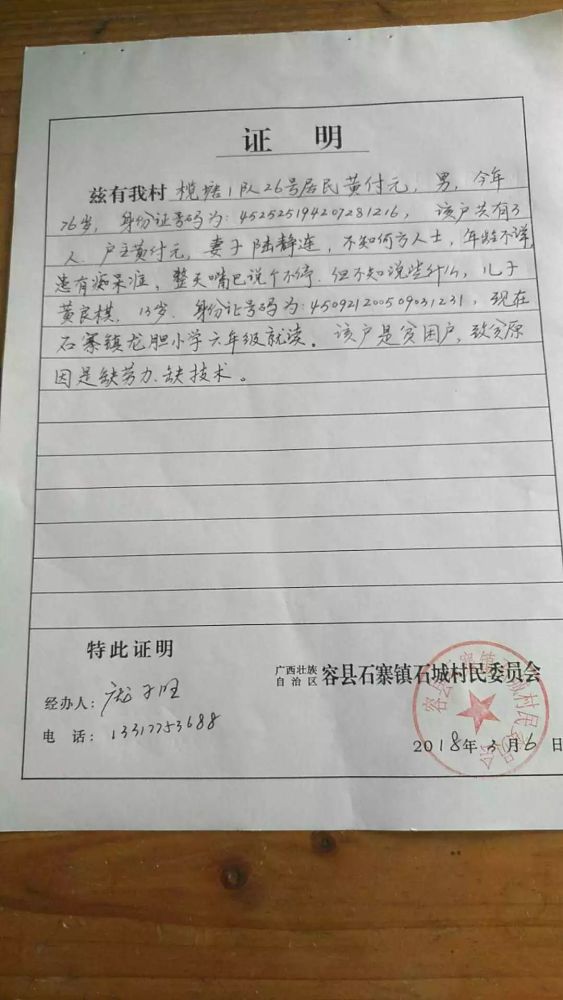 证 明
兹有我村 榄塘1队26号居民黄付元，男，今年
76岁，身份证号码为：452525194207281216，该户共有3
人，户主黄付元，妻子陆静连，不知何方人士，年龄不详，
患有痴呆症，整天嘴巴说个不停，但不知说些什么，儿子
黄良棋，13岁，身份证号码为：450921200509031231，现在
石寨镇龙胆小学六年级就读。该户是贫困户，致贫原
因是缺劳力、缺技术。
特此证明
广西壮族自治区 容县石寨镇石城村民委员会
经办人：庞
电 话：13317753688
2018年3月6日